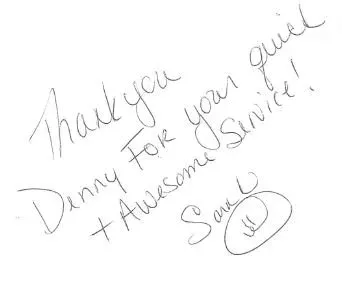 Thank you
Denny For your quick
+ Awesome Service!
Sarah